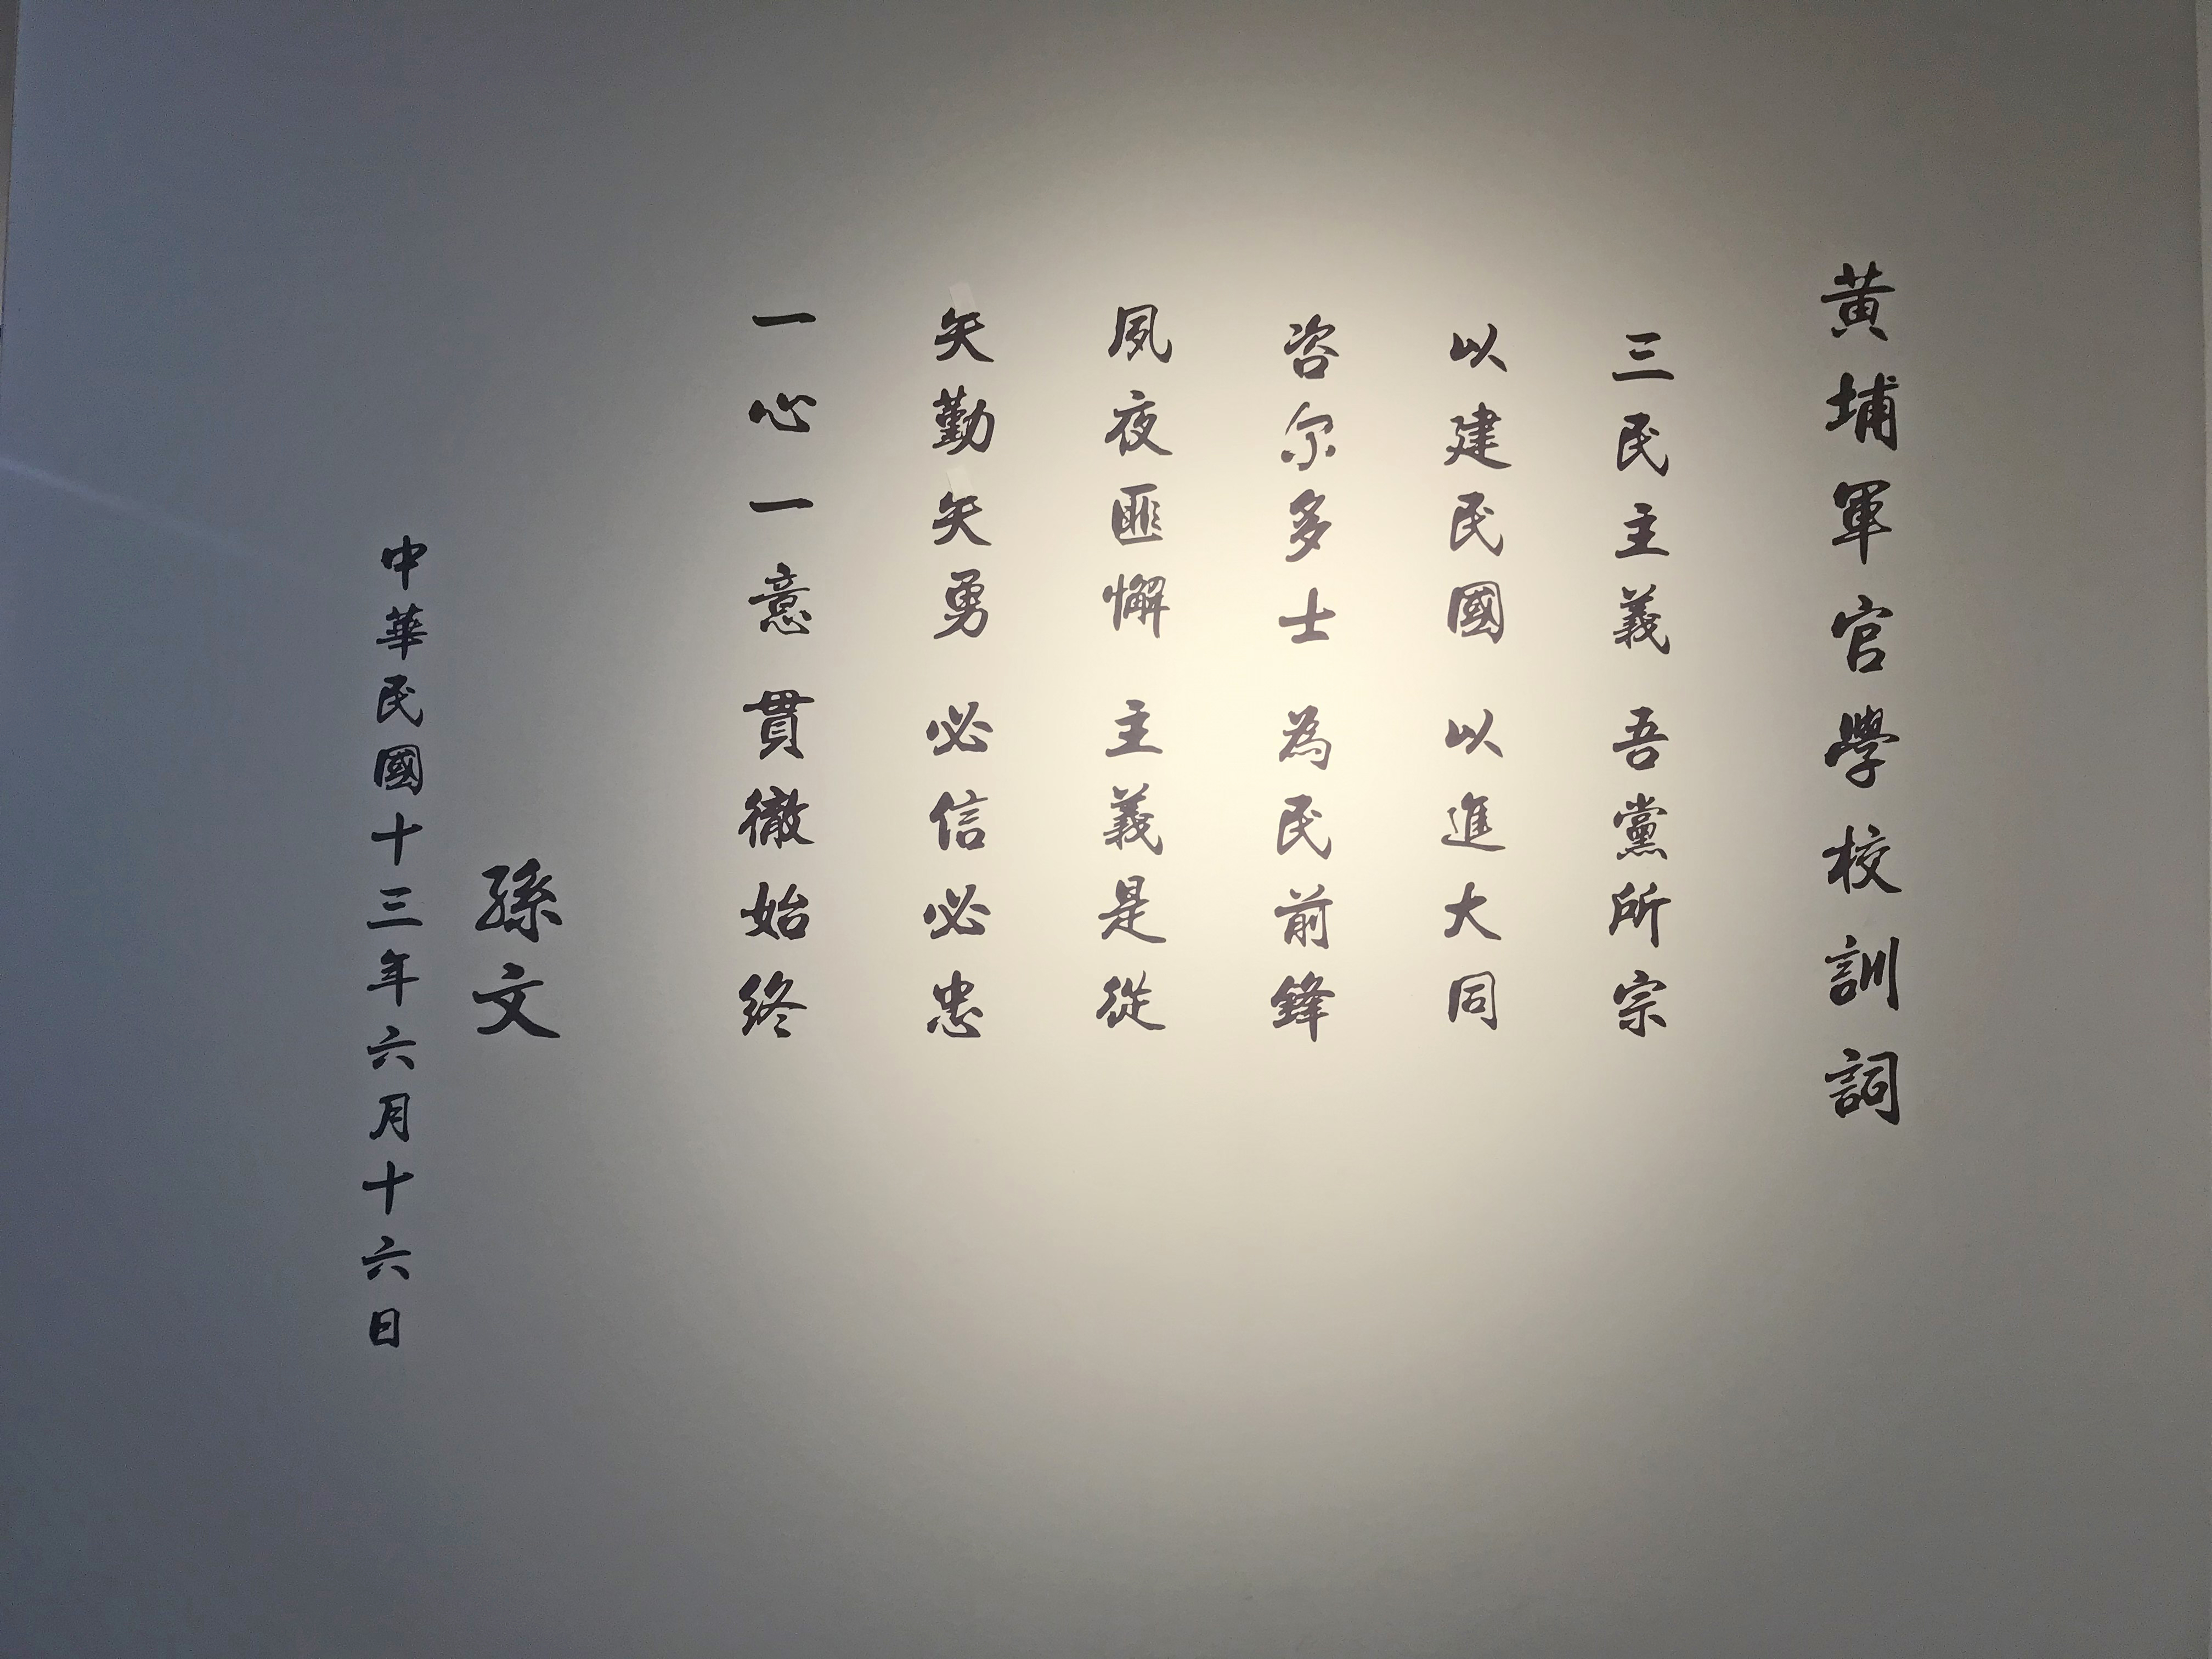 黄埔軍官學校訓詞
三民主義 吾黨所宗
以建民國 以進大同
咨尔多士 為民前鋒
夙夜匪懈 主義是從
矢勤矢勇 必信必忠
一心一意 貫徹始終
孫文
中華民國十三年六月十六日